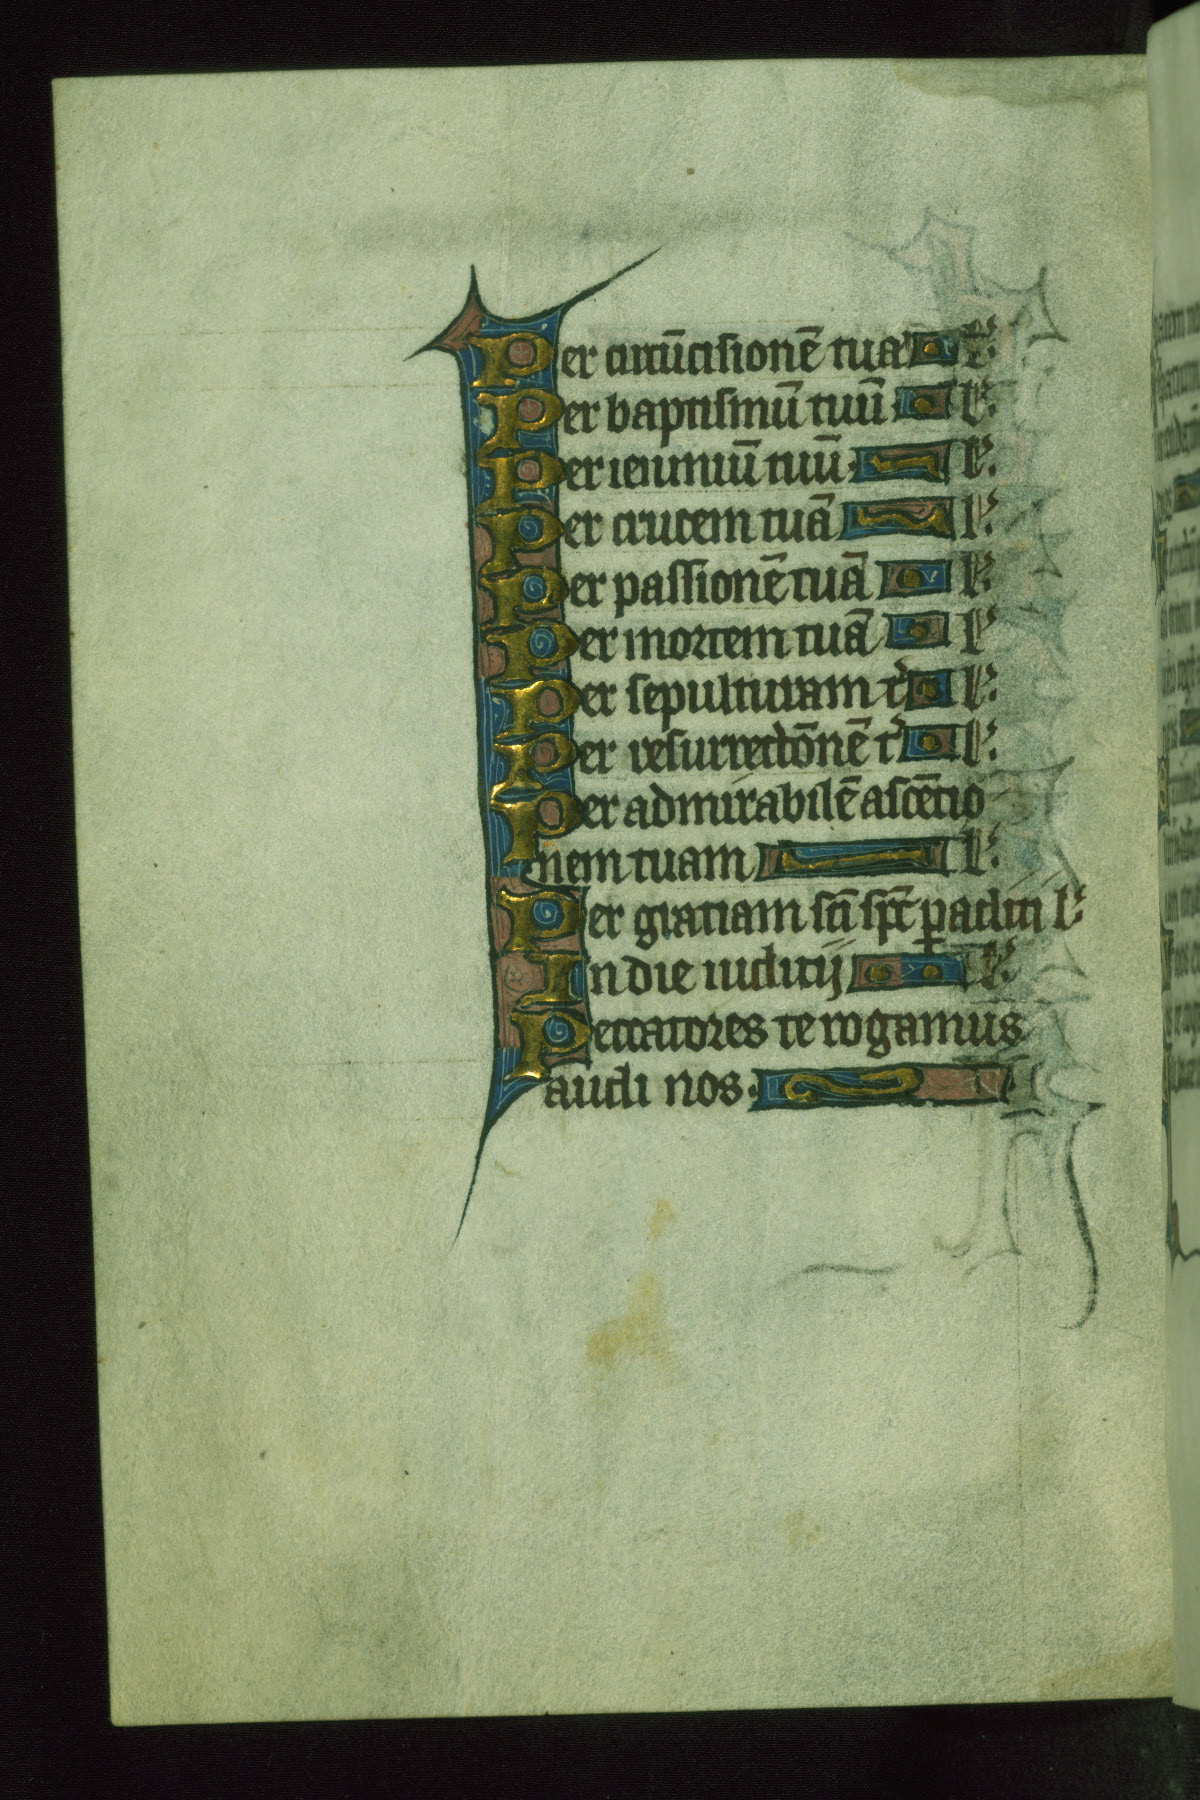 Per circūcisionē tuā l'.
Per baptismū tuū l'.
Per ieiuniū tuū l'.
Per crucem tuā l'.
Per passionē tuā l'.
Per mortem tuā l'.
Per sepulturam t' l'.
Per resurrectōnē t' l'.
Per admirabilē ascētio
nem tuam l'.
Per gratiam sc̄i sp̄c ꝑacliti l'.
In die iudicij l'.
Peccatores te rogamus
audi nos.